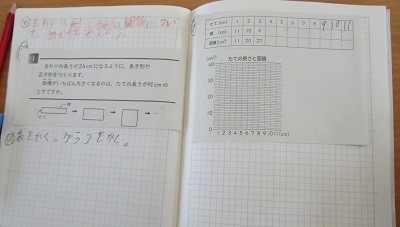 1
まわりの長さが24cmになるように、長方形や
正方形をつくります。
面積がいちばん大きくなるのは、たての長さが何cmの
ときですか。
表をかく。グラフをかく。
たて(cm) 1 2 3 4 5 6 7 8 9 10 11
横(cm) 11 10 9
面積(cm²) 11 20 27
たての長さと面積
(cm²)
40
30
20
10
0
1 2 3 4 5 6 7 8 9 10 11(cm)